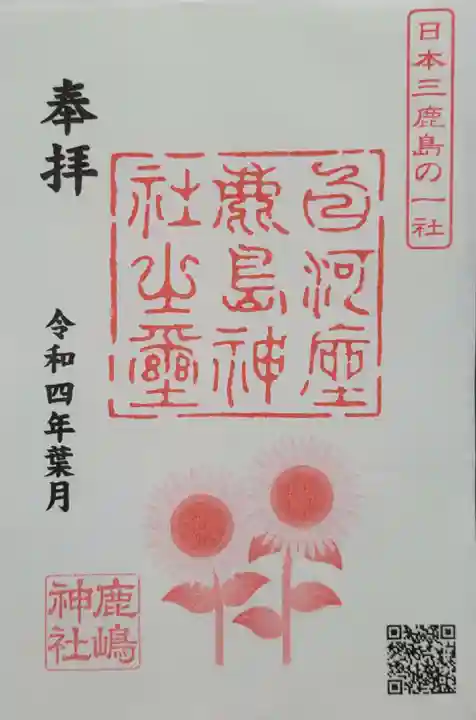 日本三鹿島の一社
白河座
鹿島神
社之璽
奉拝
令和四年葉月
鹿嶋
神社